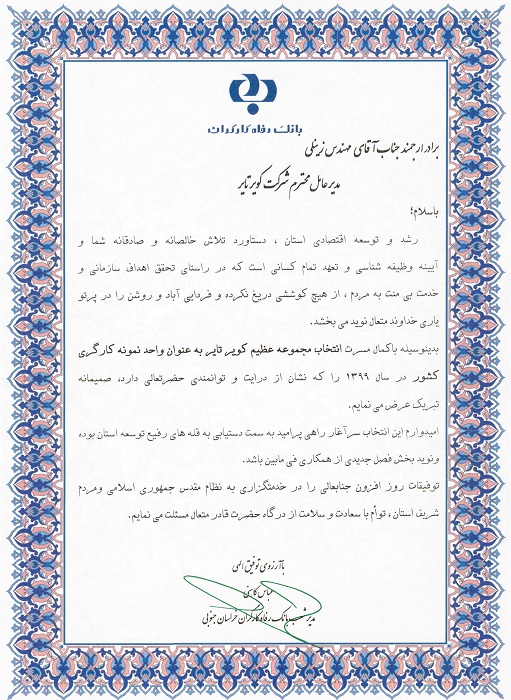 بانک رفاه کارگران
برادر ارجمند جناب آقای مهندس زینلی
مدیر عامل محترم شرکت کویر تایر
باسلام؛
رشد و توسعه اقتصادی استان ، دستاورد تلاش خالصانه و صادقانه شما و
آیینه وظیفه شناسی و تعهد تمام کسانی است که در راستای تحقق اهداف سازمانی و
خدمت بی منت به مردم ، از هیچ کوششی دریغ نکرده و فردایی آباد و روشن را در پرتو
یاری خداوند متعال نوید می بخشد.
بدینوسیله باکمال مسرت انتخاب مجموعه عظیم کویر تایر به عنوان واحد نمونه کارگری
کشور در سال ۱۳۹۹ را که نشان از درایت و توانمندی حضرتعالی دارد، صمیمانه
تبریک عرض می نمایم.
امیدوارم این انتخاب سرآغاز راهی پرامید به سمت دستیابی به قله های رفیع توسعه استان بوده
ونوید بخش فصل جدیدی از همکاری فی مابین باشد.
توفیقات روز افزون جنابعالی را در خدمتگزاری به نظام مقدس جمهوری اسلامی ومردم
شریف استان ، توأم با سعادت و سلامت از درگاه حضرت قادر متعال مسئلت می نمایم.
با آرزوی توفیق الهی
عباس
مدیر شعب بانک رفاه کارگران خراسان جنوبی